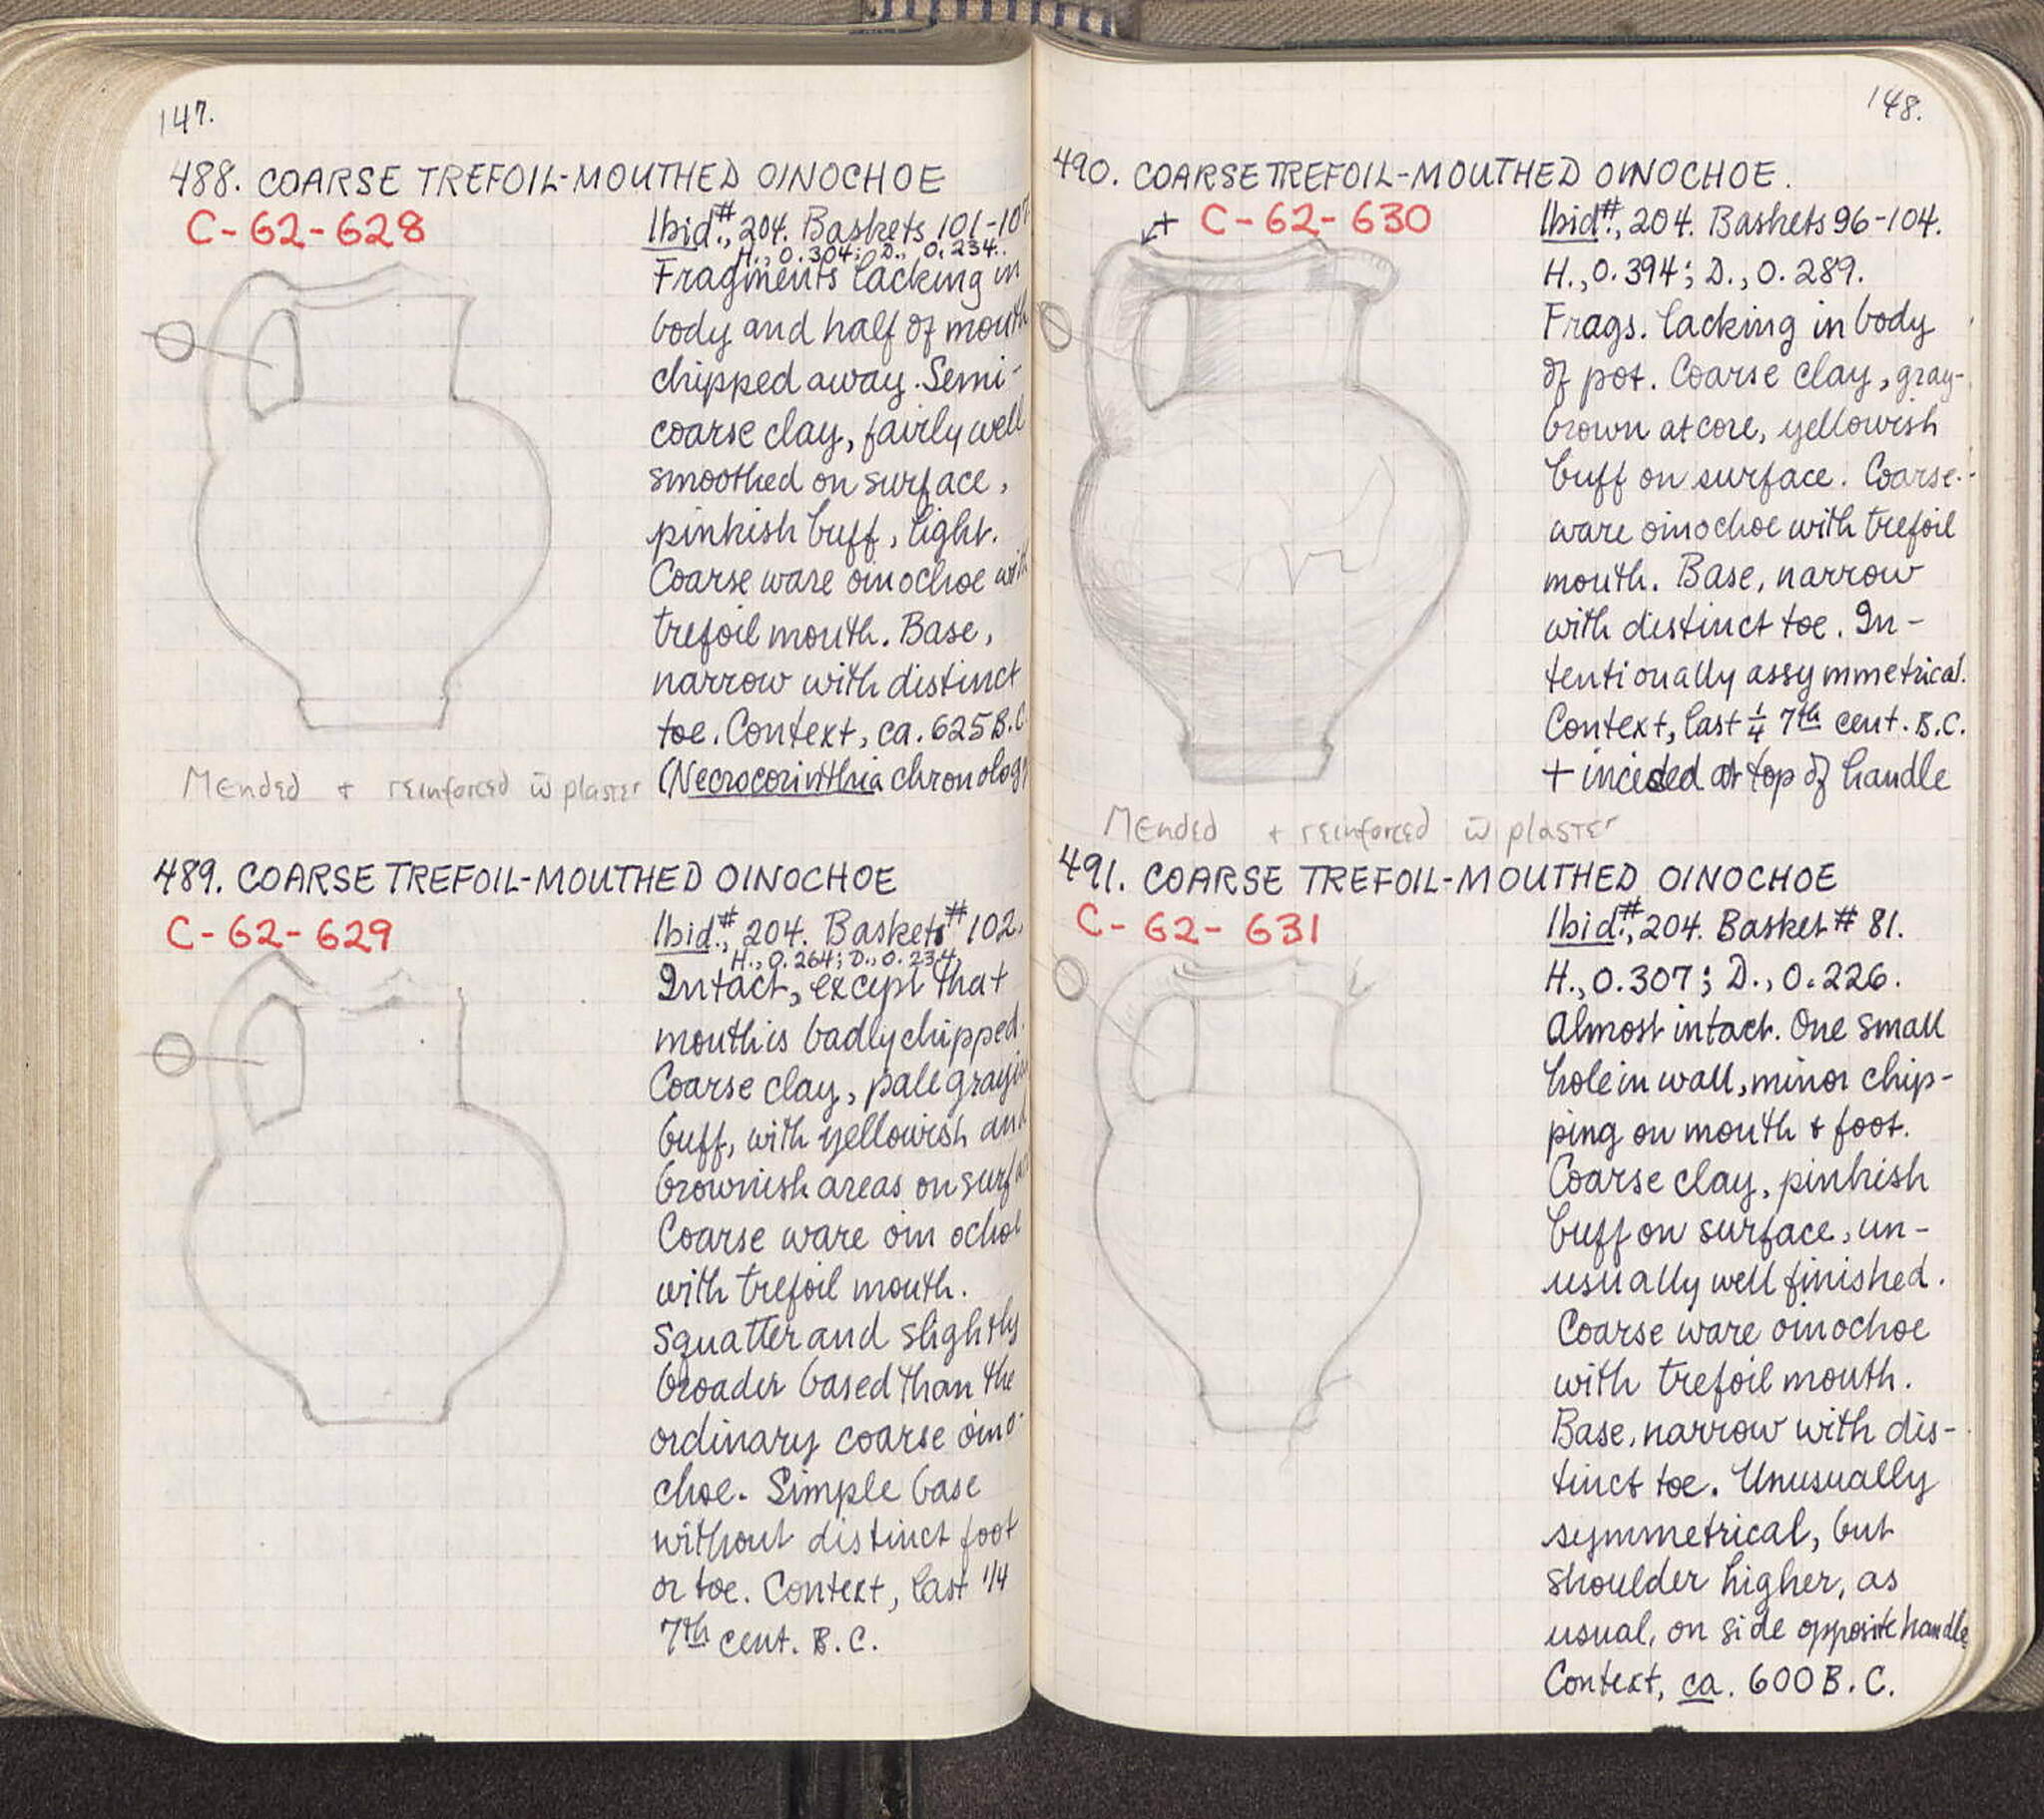 147.
488. COARSE TREFOIL-MOUTHED OINOCHOE
C-62-628
Ibid.#, 204. Baskets 101-107
H., 0.304; D., 0.234.
Fragments lacking in
body and half of mouth
chipped away. Semi-
coarse clay, fairly well
smoothed on surface,
pinkish buff, light.
Coarse ware oinochoe with
trefoil mouth. Base,
narrow with distinct
toe. Context, ca. 625 B.C.
(Necrocorinthia chronology
Mended + reinforced w̄ plaster
489. COARSE TREFOIL-MOUTHED OINOCHOE
C-62-629
Ibid.#, 204. Baskets # 102,
H., 0.264; D., 0.234,
Intact, except that
mouth is badly chipped.
Coarse clay, pale grayish
buff, with yellowish and
brownish areas on
Coarse ware oinochoe
with trefoil mouth.
Squatter and slightly
broader based than the
ordinary coarse oino-
choe. Simple base
without distinct foot
or toe. Context, last 1/4
7th cent. B.C.
148.
490. COARSE TREFOIL-MOUTHED OINOCHOE.
+ C-62-630
Ibid.#, 204. Baskets 96-104.
H., 0.394; D., 0.289.
Frags. lacking in body
of pot. Coarse clay, gray-
brown at core, yellowish
buff on surface. Coarse-
ware oinochoe with trefoil
mouth. Base, narrow
with distinct toe. In-
tentionally assymmetrical.
Context, last ¼ 7th cent. B.C.
+ incised at top of handle
Mended + reinforced w̄ plaster
491. COARSE TREFOIL-MOUTHED OINOCHOE
C-62-631
Ibid.#, 204. Basket # 81.
H., 0.307; D., 0.226.
Almost intact. One small
hole in wall, minor chip-
ping on mouth & foot.
Coarse clay, pinkish
buff on surface, un-
usually well finished.
Coarse ware oinochoe
with trefoil mouth.
Base, narrow with dis-
tinct toe. Unusually
symmetrical, but
shoulder higher, as
usual, on side opposite handle
Context, ca. 600 B.C.